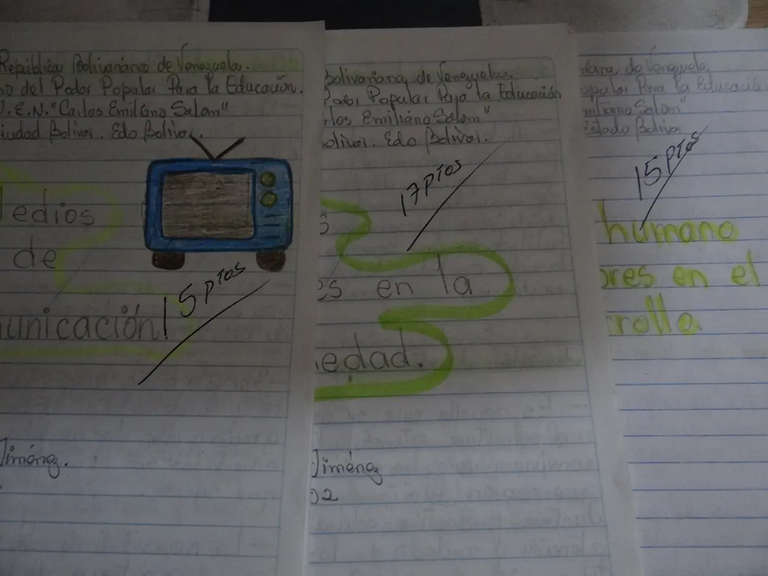 República Bolivariana de Venezuela.
del Poder Popular Para la Educación.
E.N. "Carlos Emiliano Salom"
Ciudad Bolívar. Edo Bolívar.
edios
de
unicación
15 ptos
Jiménez.
Bolivariana de Venezuela.
Poder Popular Para la Educación
los Emiliano Salom"
olívar. Edo Bolívar.
17 ptos
es en la
iedad.
Jiménez
02
ana de Venezuela
opular Para la Educación
miliano Salom"
Estado Bolíva
15 ptos
humano
ores en el
rrollo.